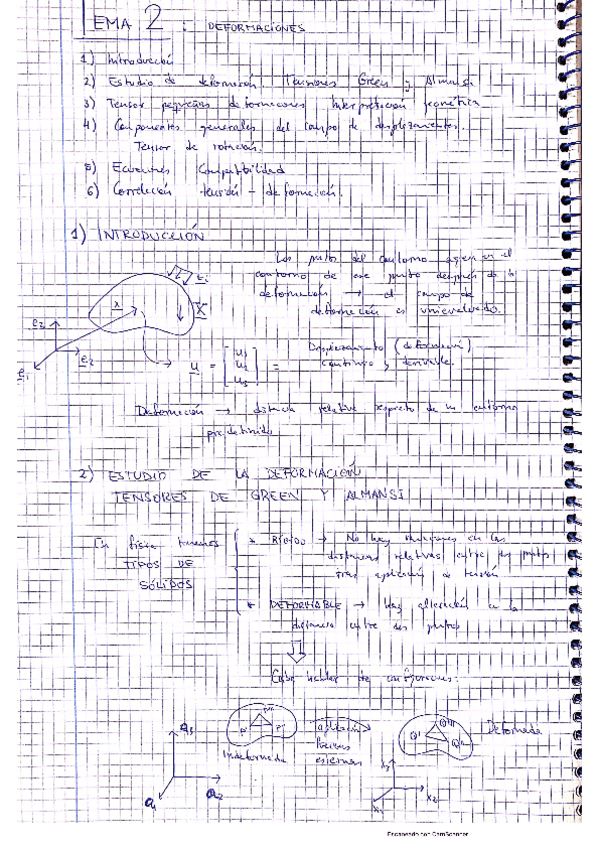 TEMA 2 : DEFORMACIONES
1) Introducción
2) Estudio de deformación. Tensores Green y Almansi
3) Tensor pequeñas deformaciones Interpretación geométrica
4) Componentes generales del campo de desplazamientos.
Tensor de rotación.
5) Ecuaciones Compatibilidad
6) Correlación tensión - deformación.
1) INTRODUCCIÓN
Los ptos del contorno en el
contorno de ese punto después de la
deformación → el campo de
deformación es univaluado.
x X
e3 e2 e1
u = [u1 u2 u3] = Desplazamiento (deformación)
continuo y derivable.
Deformación → distancia relativa respecto de un entorno
predefinido
2) ESTUDIO DE LA DEFORMACIÓN
TENSORES DE GREEN Y ALMANSI
En física tenemos
TIPOS DE
SÓLIDOS
* RÍGIDO → No hay variaciones en las
distancias relativas entre dos puntos
tras aplicación de tensión
* DEFORMABLE → Hay alteración en la
distancia entre dos puntos
Cabe hablar de configuraciones.
a3 a2 a1
P P' P''
Indeformada
aplicación
fuerzas
externas
Q Q' Q''
Deformada
x3 x2 x1
Escaneado con CamScanner